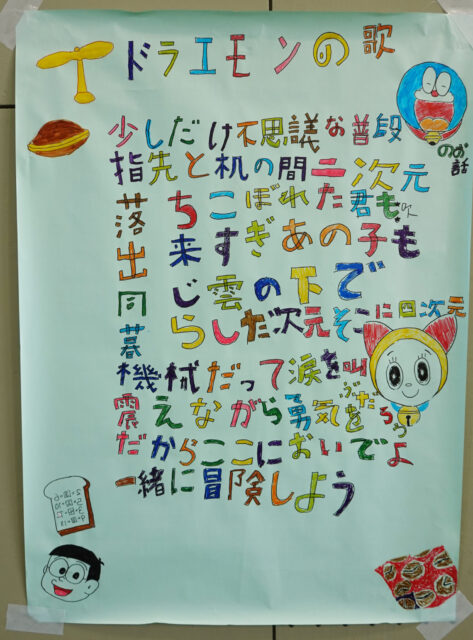 ドラエモンの歌
少しだけ不思議な普段
のお話
指先と机の間二次元
落ちこぼれた君も
出来すぎあの子も
同じ雲の下で
暮らした次元そこに四次元
機械だって涙を叫
ぶだろう
震えながら勇気を
だからここにおいでよ
一緒に冒険しよう